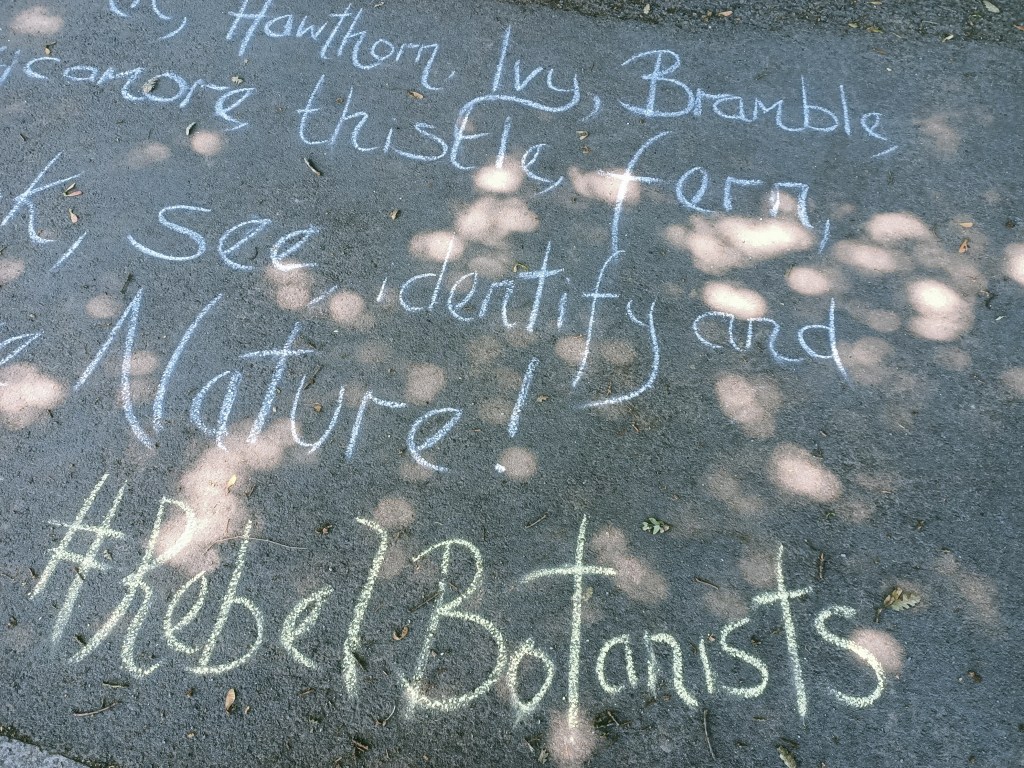 Hawthorn, Ivy, Bramble,
ycamore thistle, fern,
k, see, identify and
e Nature!
#RebelBotanists